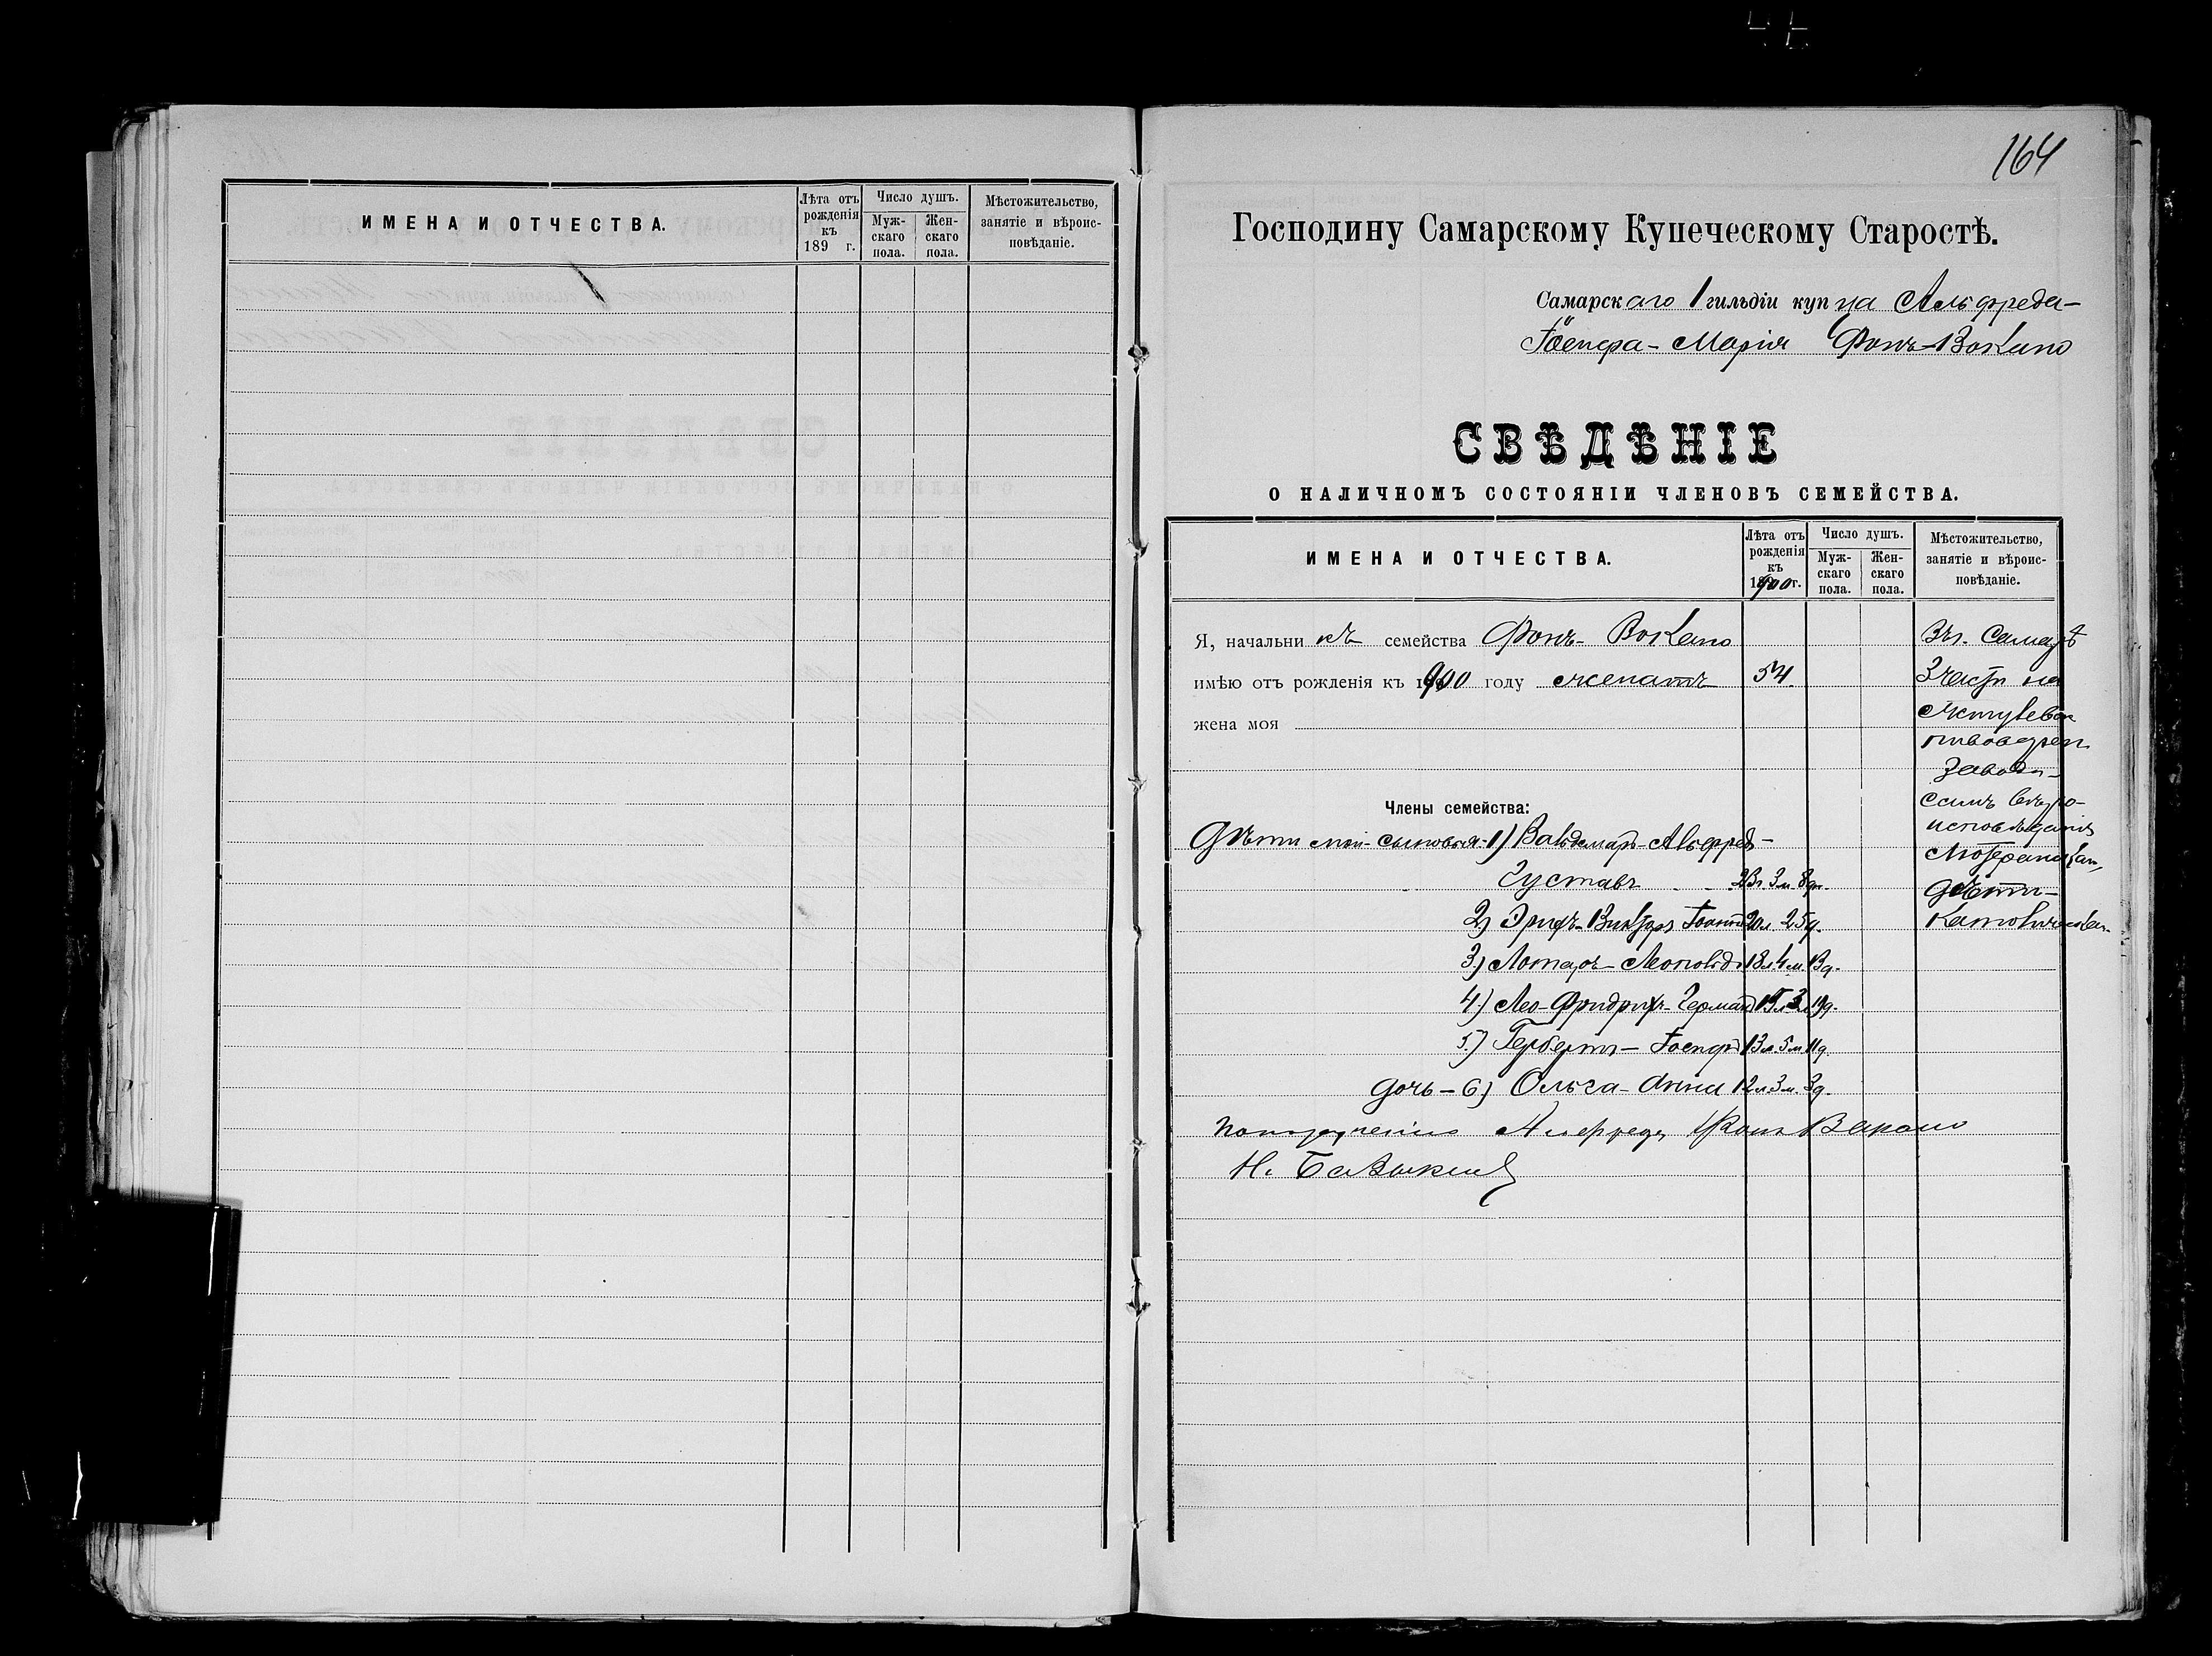 ИМЕНА И ОТЧЕСТВА.
Лѣта отъ рожденія къ 189 г.
Число душъ.
Муж-скаго пола.
Жен-скаго пола.
Мѣстожительство, занятіе и вѣроис-повѣданіе.
164
Господину Самарскому Купеческому Старостѣ.
Самарскаго 1 гильдіи купца Альфреда-
Іосифа-Марія Фонъ-Вокано
СВѢДѢНІЕ
О НАЛИЧНОМЪ СОСТОЯНІИ ЧЛЕНОВЪ СЕМЕЙСТВА.
ИМЕНА И ОТЧЕСТВА.
Лѣта отъ рожденія къ 1900 г.
Число душъ.
Муж-скаго пола.
Жен-скаго пола.
Мѣстожительство, занятіе и вѣроис-повѣданіе.
Я, начальникъ семейства Фонъ-Вокано
имѣю отъ рожденія къ 1900 году женатъ 54.
жена моя
Въ г. Самарѣ
3 части на
пивоварен.
заводѣ-
самъ вѣро-
исповѣданія
Лютеранскаго,
дѣти-
Католическаго.
Члены семейства:
Дѣти мои-сыновья: 1) Вальдемаръ-Альфредъ-
Густавъ 23 г. 3 м. 8 дн.
2) Эрихъ-Викторъ 20 л. 25 д.
3) Лотаръ-Леопольдъ 18 л. 4 м. 13 д.
4) Лео-Фридрихъ-Германъ 15 л. 3 м. 19 д.
5) Гербертъ-Іосифъ 13 л. 5 м. 11 д.
дочь-6) Ольга-Анна 12 л. 3 м. 3 д.
По порученію Альфреда Фонъ Вакано
Н.